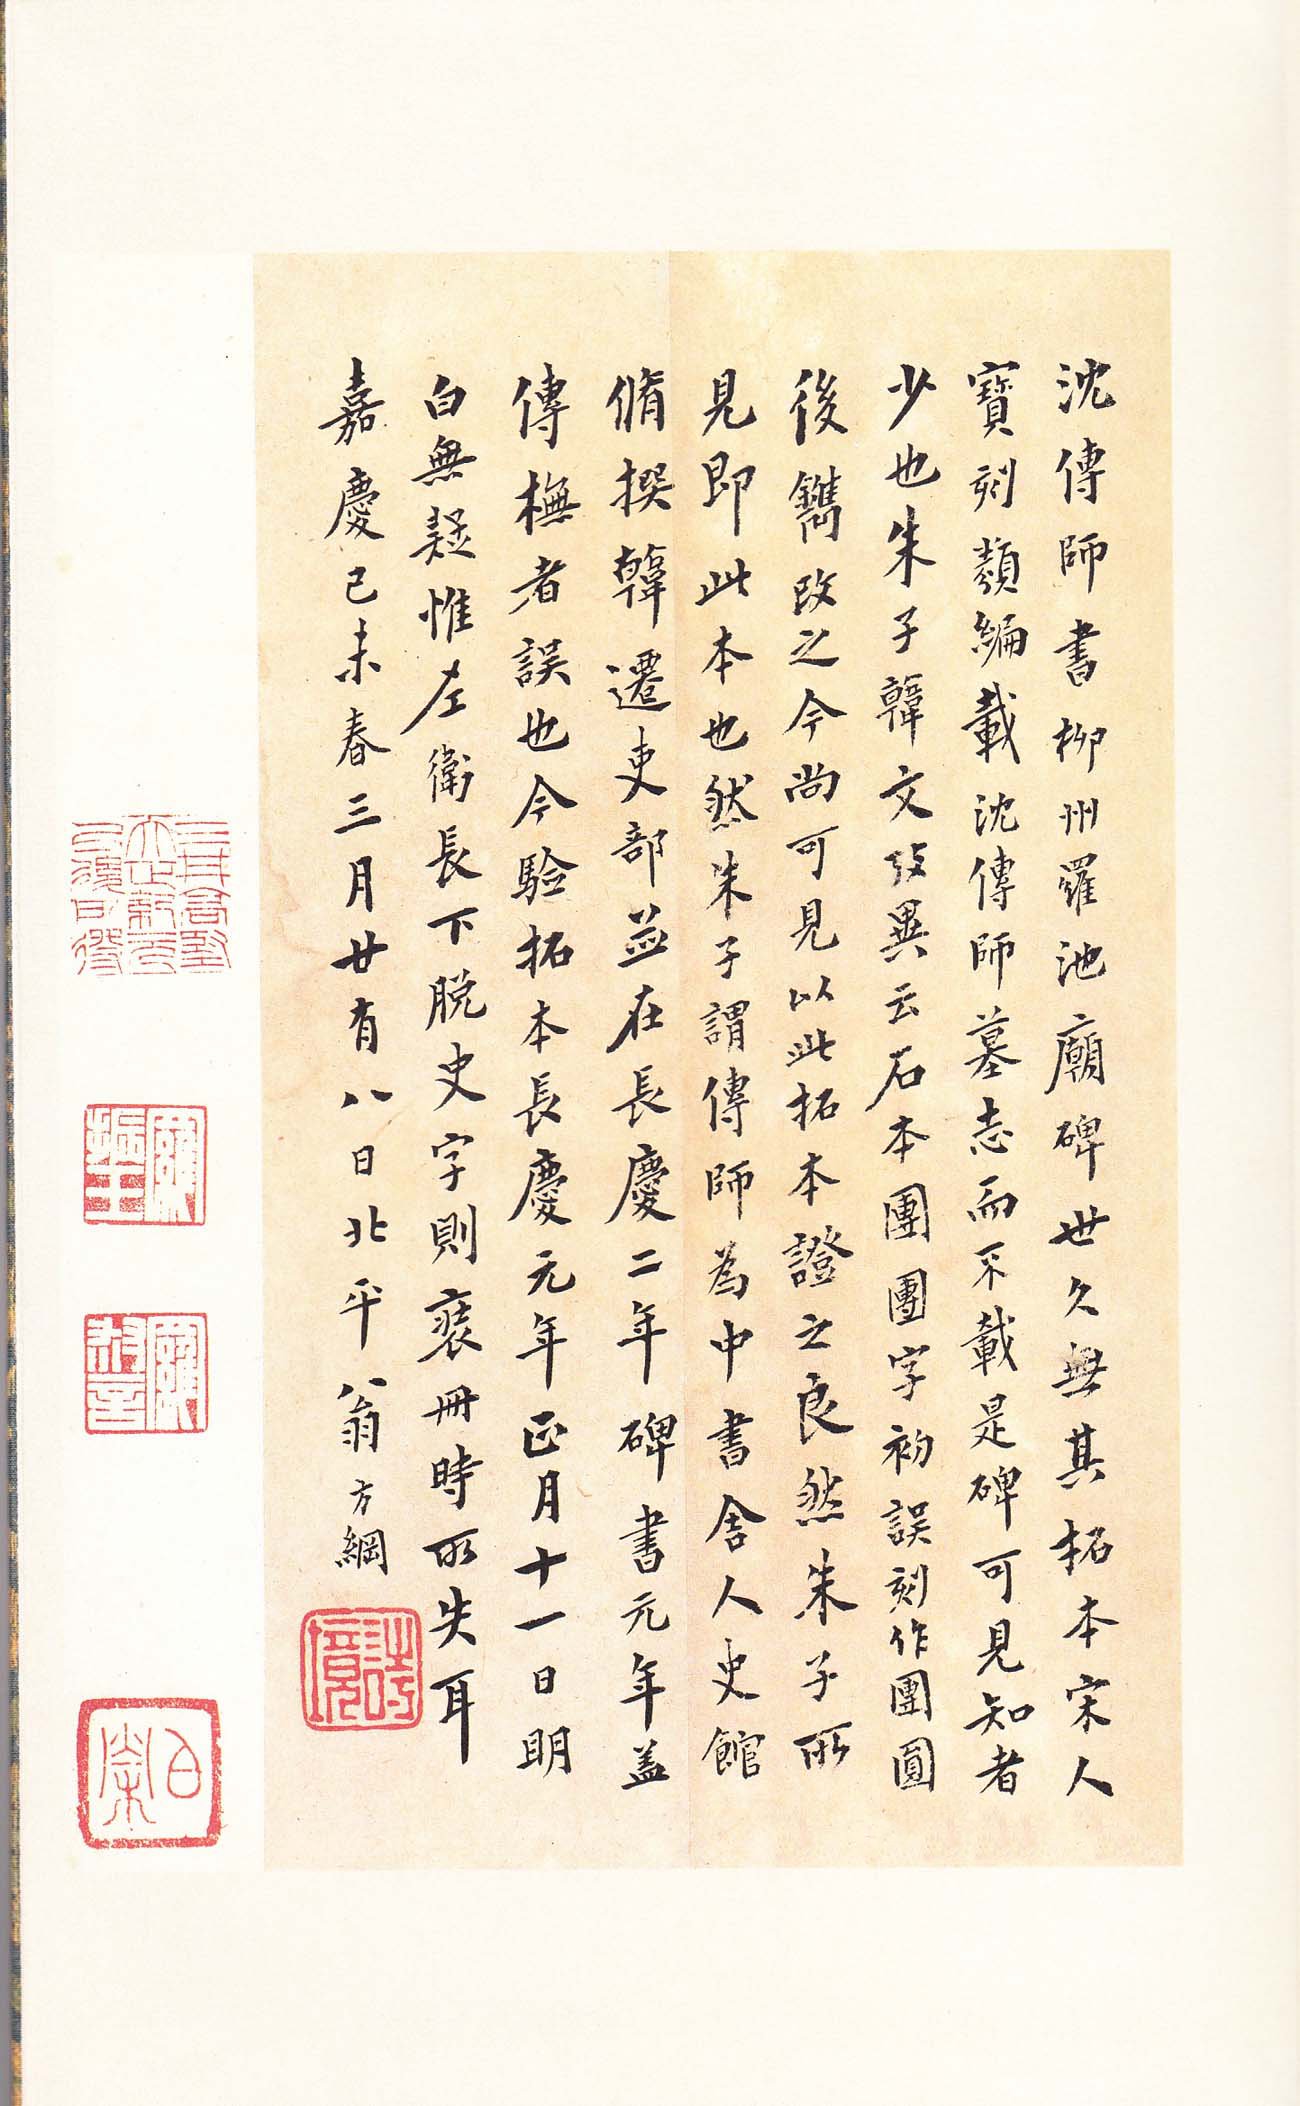 沈傳師書柳州羅池廟碑世久無其拓本宋人
寶刻類編載沈傳師墓志而不載是碑可見知者
少也朱子韓文攷異云石本團團字初誤刻作團圓
後鐫改之今尚可見以此拓本證之良然朱子所
見即此本也然朱子謂傳師為中書舍人史館
脩撰韓遷吏部並在長慶二年碑書元年蓋
傳橅者誤也今驗拓本長慶元年正月十一日明
白無疑惟左衛長下脫史字則裘冊時所失耳
嘉慶己未春三月廿有八日北平翁方綱
詩境
羅振玉